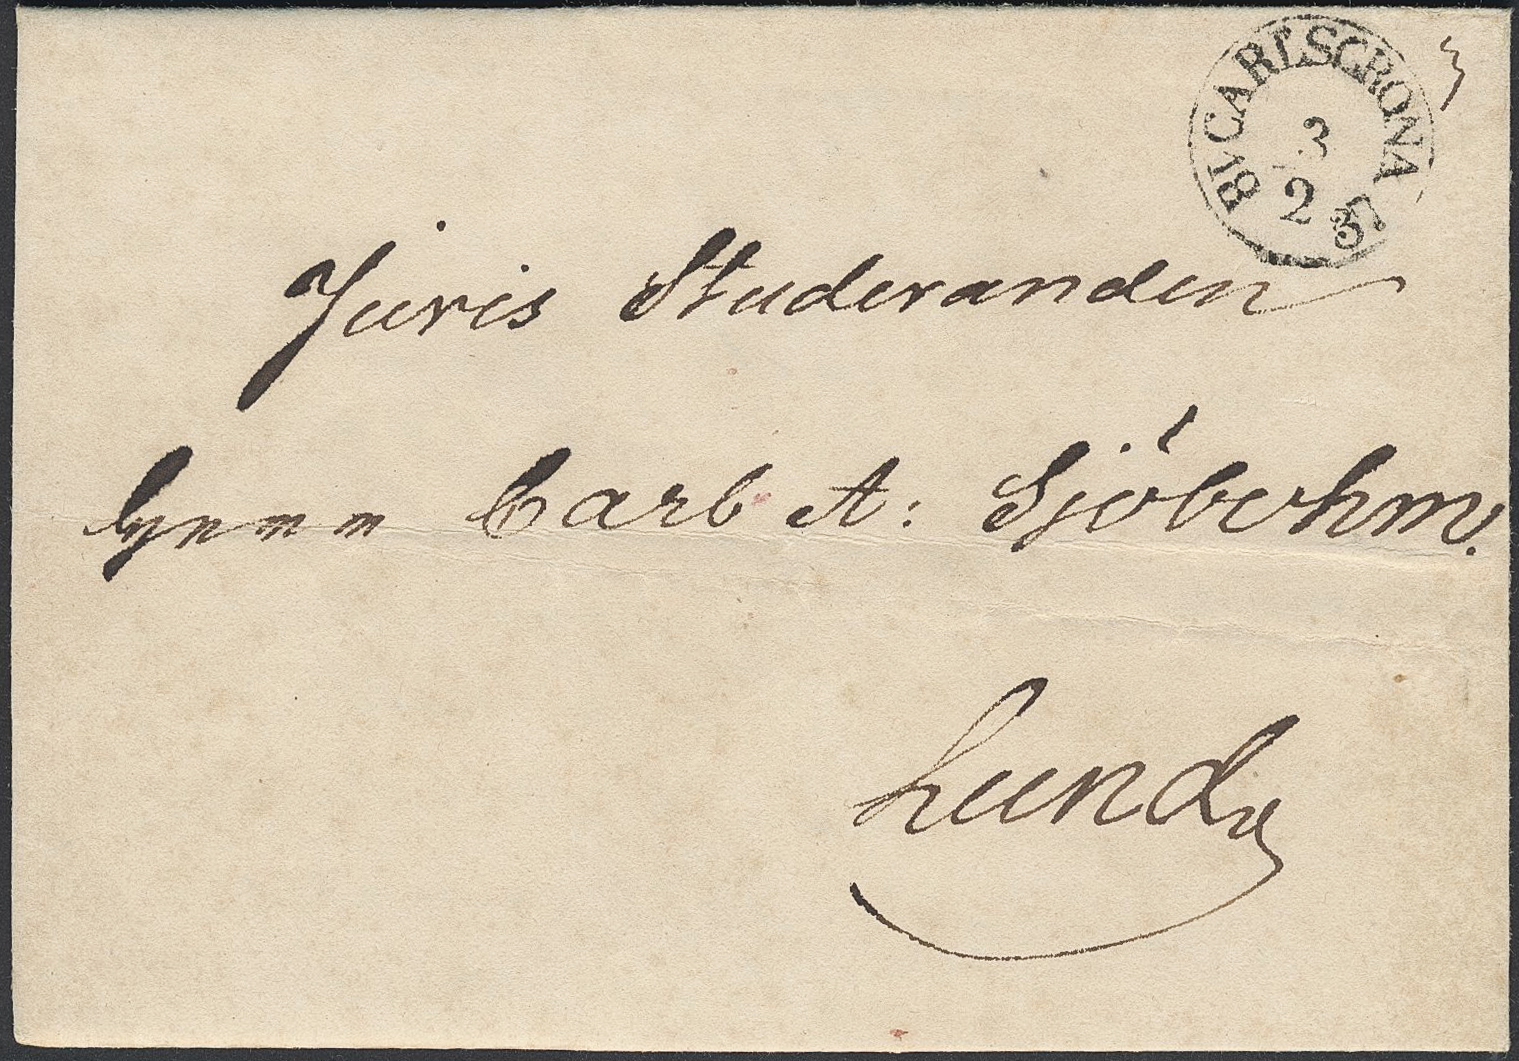 CARLSCRONA
3
2
Juris Studeranden
Carl A: Sjöbohm.
Lund